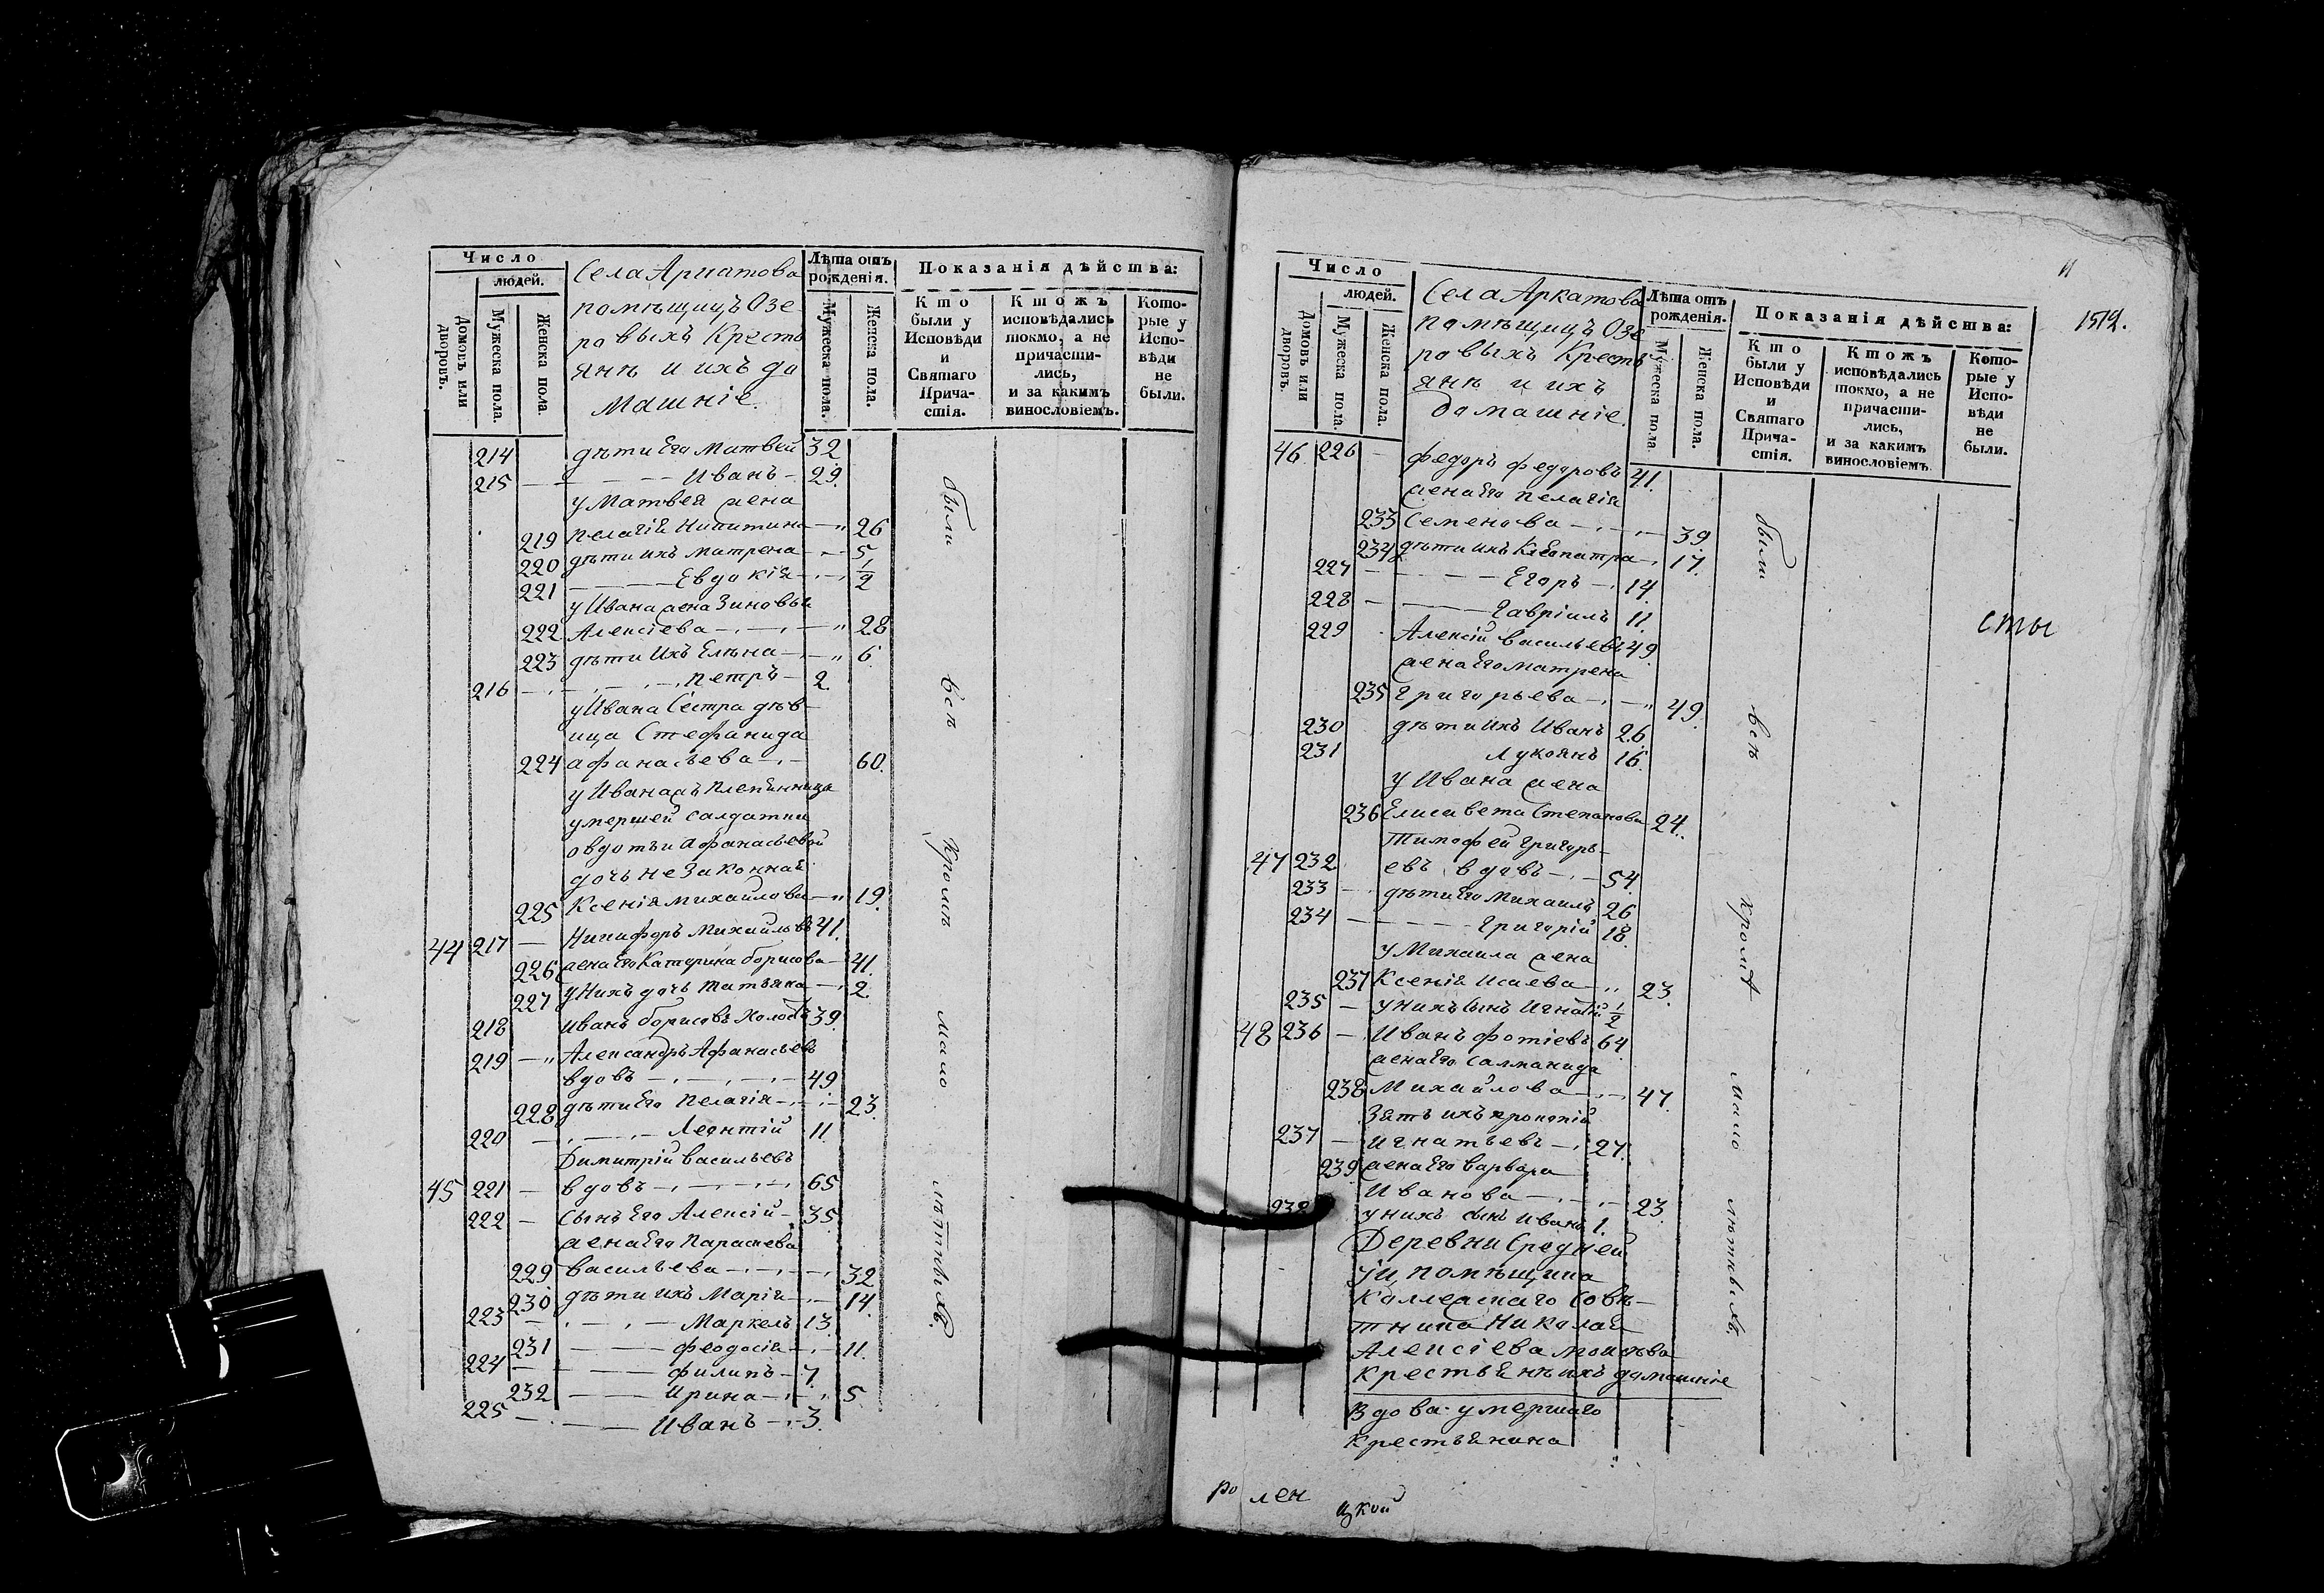 Число
людей.
Домовъ или дворовъ.
Мужеска пола.
Женска пола.
Села Аркатова
помѣщицъ Озе
ровыхъ Кресть
янѣ и ихъ до
машніе.
Лѣта отъ рожденія.
Мужеска пола.
Женска пола.
Показанія дѣйства:
Кто были у Исповѣди и Святаго Прича-стія.
Ктожъ исповѣдались токмо, а не причасти-лись, и за какимъ винословіемъ.
Кото-рые у Испо-вѣди не были.
214 дѣти Его Матвей 32
215 — Иванъ — 29.
у Матвея жена
219 Пелагія Никитина — 26
220 дѣти ихъ Матрена — 5
221 — Евдокія — 1/2
у Ивана жена Зиновья
222 Алексіева — 28
223 дѣти Ихъ Елѣна — 6.
216 — Петръ — 2.
у Ивана Сестра дѣв-
ица Стефанида
224 Афанасьева — 60.
у Ивана жъ племянница
умершей салдатки
овдотьи Афанасьевой
дочь незаконная
225 Ксенія Михайлова — 19.
44 217 — Никифоръ Михайловъ 41.
226 жена Его Катерина борисова — 41.
227 у Нихъ дочь Татьяна — 2.
218 Иванъ борисовъ Холостъ 39.
219 — Александръ Афанасьевъ
вдовъ — 49
228 дѣти Его Пелагія — 23.
220 — Леонтій 11
Димитрій васильевъ
45 221 — вдовъ — 65
222 — Сынъ Его Алексій — 35.
жена Его Параскева
229 васильева — 32
230 дѣти ихъ Марія — 14.
223 — Маркелъ 13.
231 — феодосія — 11.
224 — филипъ — 7.
232 — Ирина — 5.
225 — Иванъ — 3.
были
всѣ
Кромѣ
мало
лѣтныхъ.
1512.
Число
людей.
Домовъ или дворовъ.
Мужеска пола.
Женска пола.
Села Аркатова
помѣщицъ Озе
ровыхъ Кресть
янѣ и ихъ
домашніе.
Лѣта отъ рожденія.
Мужеска пола
Женска пола.
Показанія дѣйства:
Кто были у Исповѣди и Святаго Прича-стія.
Ктожъ исповѣдались токмо, а не причасти-лись, и за какимъ винословіемъ.
Кото-рые у Испо-вѣди не были.
46 226 — федоръ федоровъ 41.
жена Его пелагія
233 Семенова — 39
234 дѣти ихъ Клеопатра — 17.
227 — Егоръ — 14
228 — Гавріилъ 11
229 Алексій васильевъ 49.
жена Его Матрена
235 Григорьева — 49.
230 дѣти ихъ Иванъ 26.
231 Лукоянъ 16.
у Ивана жена
236 Елисавета Степанова 24.
Тимофей Григорь-
47 232 евъ вдовъ — 54.
233 — дѣти Его Михаилъ 26
234 — Григорій 18.
у Михаила жена
237 Ксенія Исаева — 23.
235 — у нихъ сынъ Игнатій 1/2
48 236 — Иванъ фотіевъ 64.
жена Его Салманида
238 Михайлова — 47.
Зять ихъ прокопій
237 — Игнатьевъ — 27.
239. жена Его варвара
Иванова — 23.
238 у нихъ сынъ Иванъ 1.
Деревни Средней
помѣщика
Коллежскаго Совѣ-
тника Николая
Алексіева
крестьянѣ ихъ домашніе
Вдова умершаго
Крестьянина
были
всѣ
кромѣ
мало
лѣтныхъ.
сты
ро лен
цкой